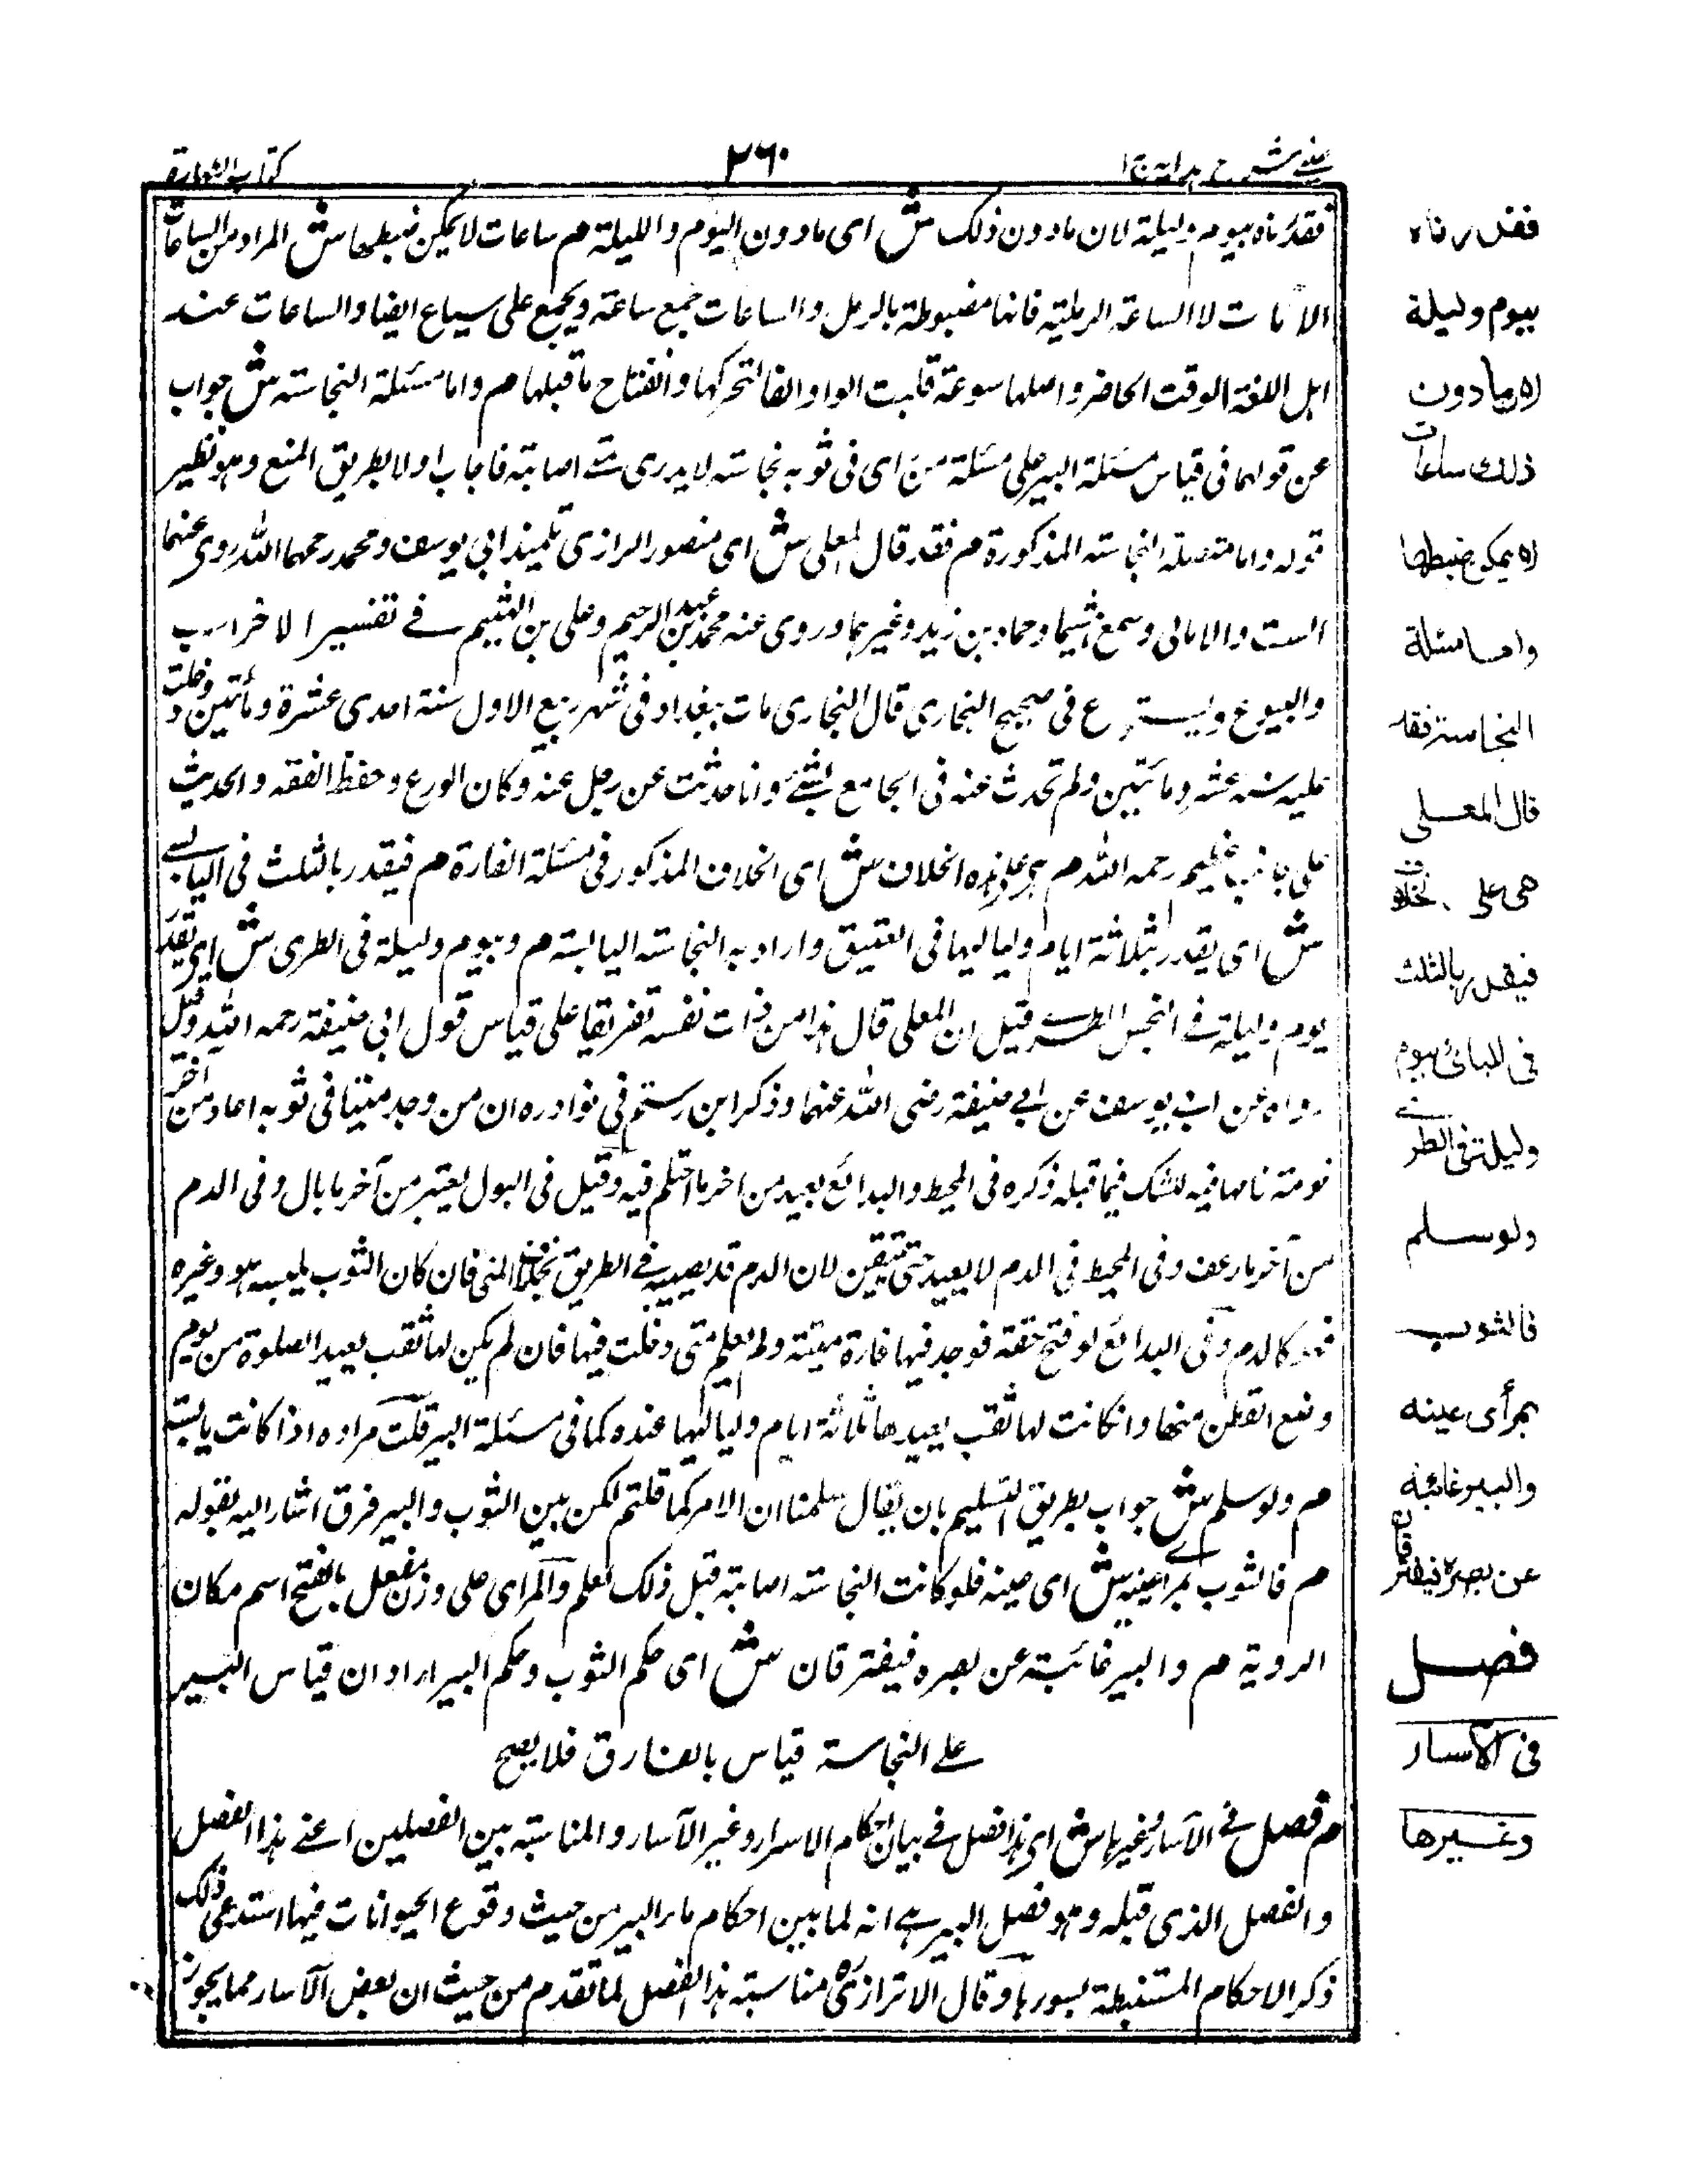 عینی شرح ہدایہ ج ا
۲۶۰
کتاب الطہارة
فقدرناه بيوم وليلة لان مادون ذلك ش اى مادون اليوم والليلة م ساعات لا يمكن ضبطها ش المراد من الساعات
الآنات لا الساعة الرملية فانها مضبوطة بالرمل والساعات جمع ساعة ويجمع على سياع ايضا والساعات عند
اهل اللغة الوقت الحاضر واصلها سوعة قلبت الواو الفا لتحركها وانفتاح ماقبلها م واما مسئلة النجاسة ش جواب
عن قولهما فى قياس مسئلة البير على مسئلة من راى فى ثوبه نجاسة لا يدرى متى اصابته فاجاب اولا بطريق المنع وهو نظير
قوله واما متصلة النجاسة المذكورة م فقد قال المعلى ش اى منصور الرازى تلميذ ابى يوسف ومحمد رحمهما الله روى عنهما
الست والامالى وسمع هشيما وحماد بن زيد وغيرهما وروى عنه محمد بن عبد الرحيم وعلى بن الهثيم فے تفسير الاخراب
والبيوع ع فى صحيح البخارى قال البخارى مات ببغداد فى شهر ربيع الاول سنة احدى عشرة ومأتين ودخلت
عليه سنة عشر ومائتين ولم تحدث عنه فى الجامع بشئ وانا حدثت عن رجل عنه وكان الورع وحفظ الفقه والحديث
على جانب عظيم رحمه الله م هى على هذه الخلاف ش اى الخلاف المذكور فى مسئلة الفارة م فيقدر بالثلث فى اليابس
ش اى يقدر بثلاثة ايام ولياليها فى العتيق واراد به النجاسة اليابسة م وبيوم وليلة فى الطرى ش اى يقدر
يوم وليلة فے النجس الطرے قيل ان المعلى قال هذا من ذات نفسه تفريقا على قياس قول ابى حنيفة رحمه الله وقيل
رواه عن ابى يوسف عن ابے حنيفة رضى الله عنهما وذكر ابن رستم فى نوادره ان من وجد منيا فى ثوبه اعاد من آخر
نومة نامها فيه للشك فيما قبله ذكره فى المحيط والبدائع يعيد من اخر ما احتلم فيه وقيل فى البول يعتبر من آخر ما بال وفى الدم
من آخر ما رعف وفى المحيط فى الدم لا يعيد حتى يتيقن لان الدم قد يصيبه فے الطريق بخلاف المنى فان كان الثوب يلبسه هو وغيره
فهو كالدم وفى البدائع لو فتح جبته فوجد فيها فارة ميتة ولم يعلم متى دخلت فيها فان لم يكن لها ثقب يعيد الصلوة من يوم
وضع القطن منها وانكانت لها ثقب يعيدها ثلاثة ايام ولياليها عنده كما فى مسئلة البير قلت مراده اذا كانت يابسة
م ولو سلم ش جواب بطريق التسليم بان يقال سلمنا ان الامر كما قلتم لكن بين الثوب والبير فرق اشار اليه بقوله
م فالثوب بمراى عينه ش اى عينه فلو كانت النجاسة اصابته قبل ذلك لعلم والمراى على وزن مفعل بالفتح اسم مكان
الروية م والبير غائبة عن بصره فيفترقان ش اى حكم الثوب وحكم البير اراد ان قياس البير
على النجاسة قياس بالفارق فلا يصح
م فصل فے الآسار وغيرها ش اى هذا فصل فے بيان احكام الاسرار وغير الآسار والمناسبة بين الفصلين اعنے هذا الفصل
والفصل الذى قبله وهو فصل البير هے انه لما بين احكام ماء البير من حيث وقوع الحيوانات فيها استدعى ذلك
ذكر الاحكام المستنبطة بسورها وقال الاترازى مناسبة هذا الفصل لما تقدم من حيث ان بعض الآسار مما يجوز
فقدرناه
بيوم وليلة
لان مادون
ذلك ساعات
لا يمكن ضبطها
واما مسئلة
النجاسة فقد
قال المعلى
هى على الخلاف
فيقدر بالثلث
فى البالى بيوم
وليلة فى الطرى
ولو سلم
فالثوب
بمرأى عينه
والبير غائبة
عن بصره فيفترقان
فصل
فى الآسار
وغيرها